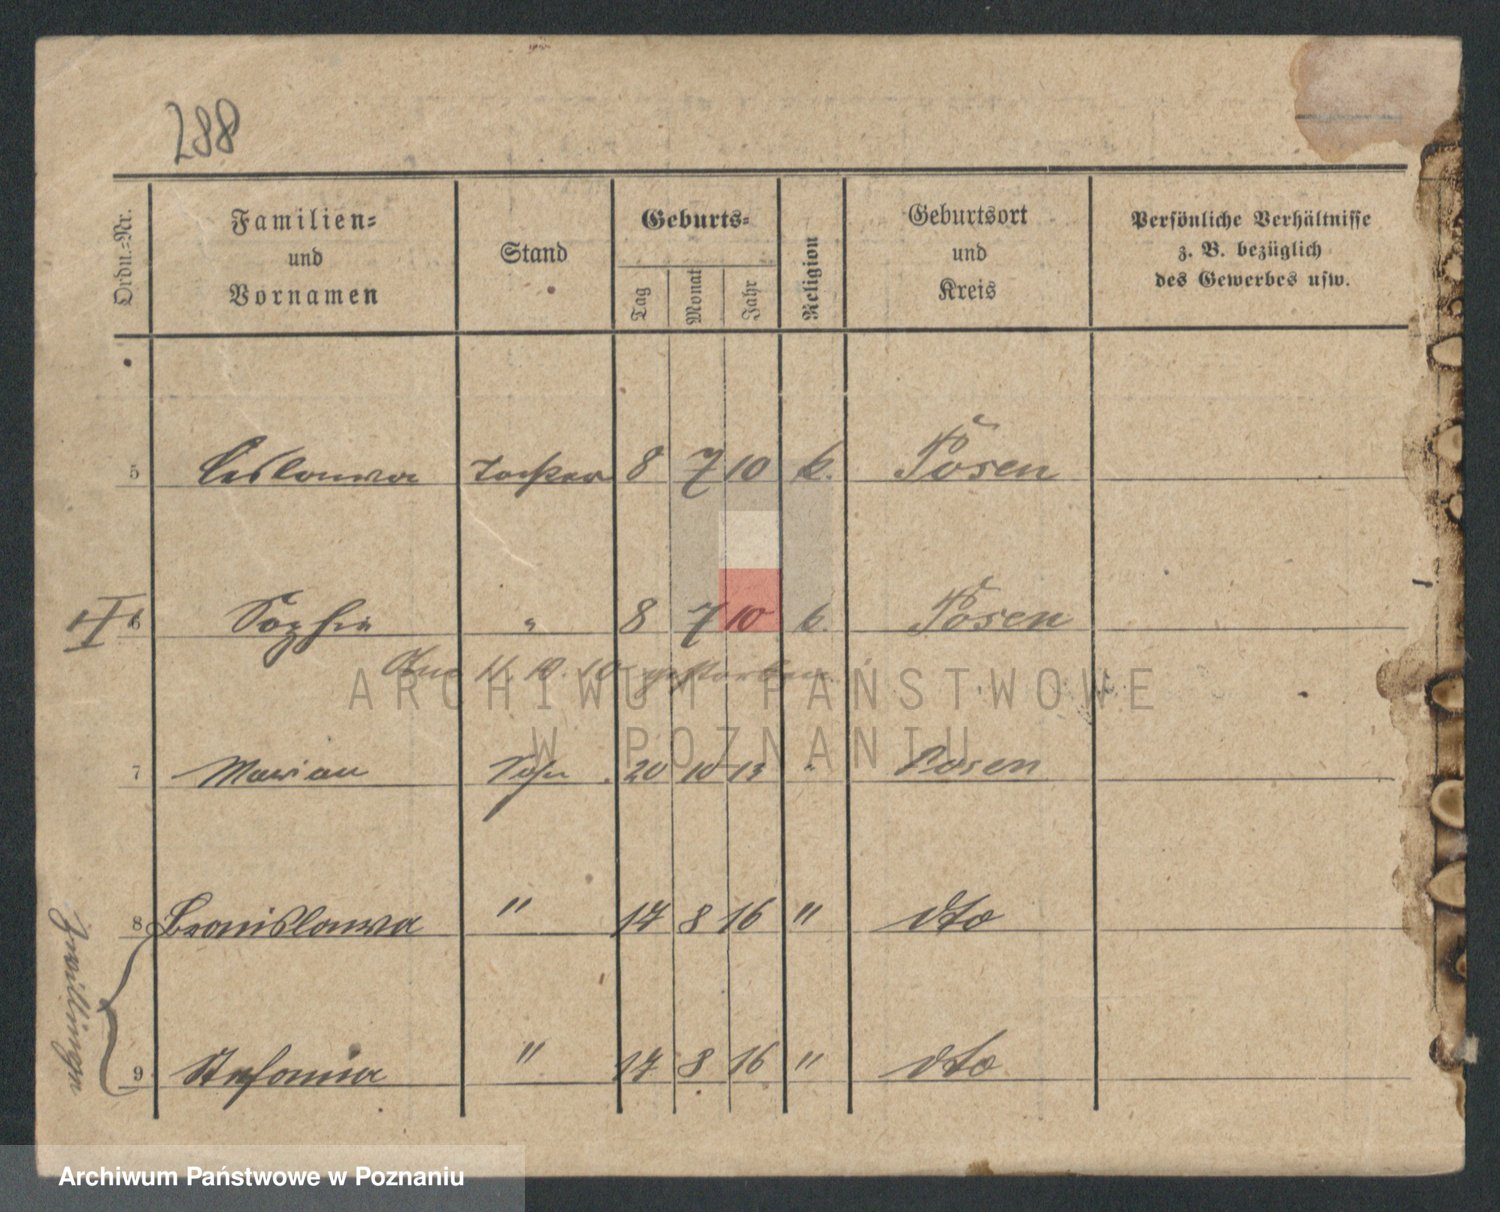 288
Ordn.-Nr. Familien- und Vornamen Stand Geburts- Tag Monat Jahr Religion Geburtsort und Kreis Persönliche Verhältnisse z. B. bezüglich des Gewerbes usw.
5 Ceslawa Tochter 8 7 10 k. Posen
6 Sophie " 8 7 10 k. Posen
Am 11. 10. 10 gestorben.
ARCHIWUM PAŃSTWOWE
W POZNANIU
7 Marian Sohn 20 10 13 " Posen
8 Bronislawa " 17 8 16 " dto
9 Stefania " 17 8 16 " dto
Zwillinge
Archiwum Państwowe w Poznaniu